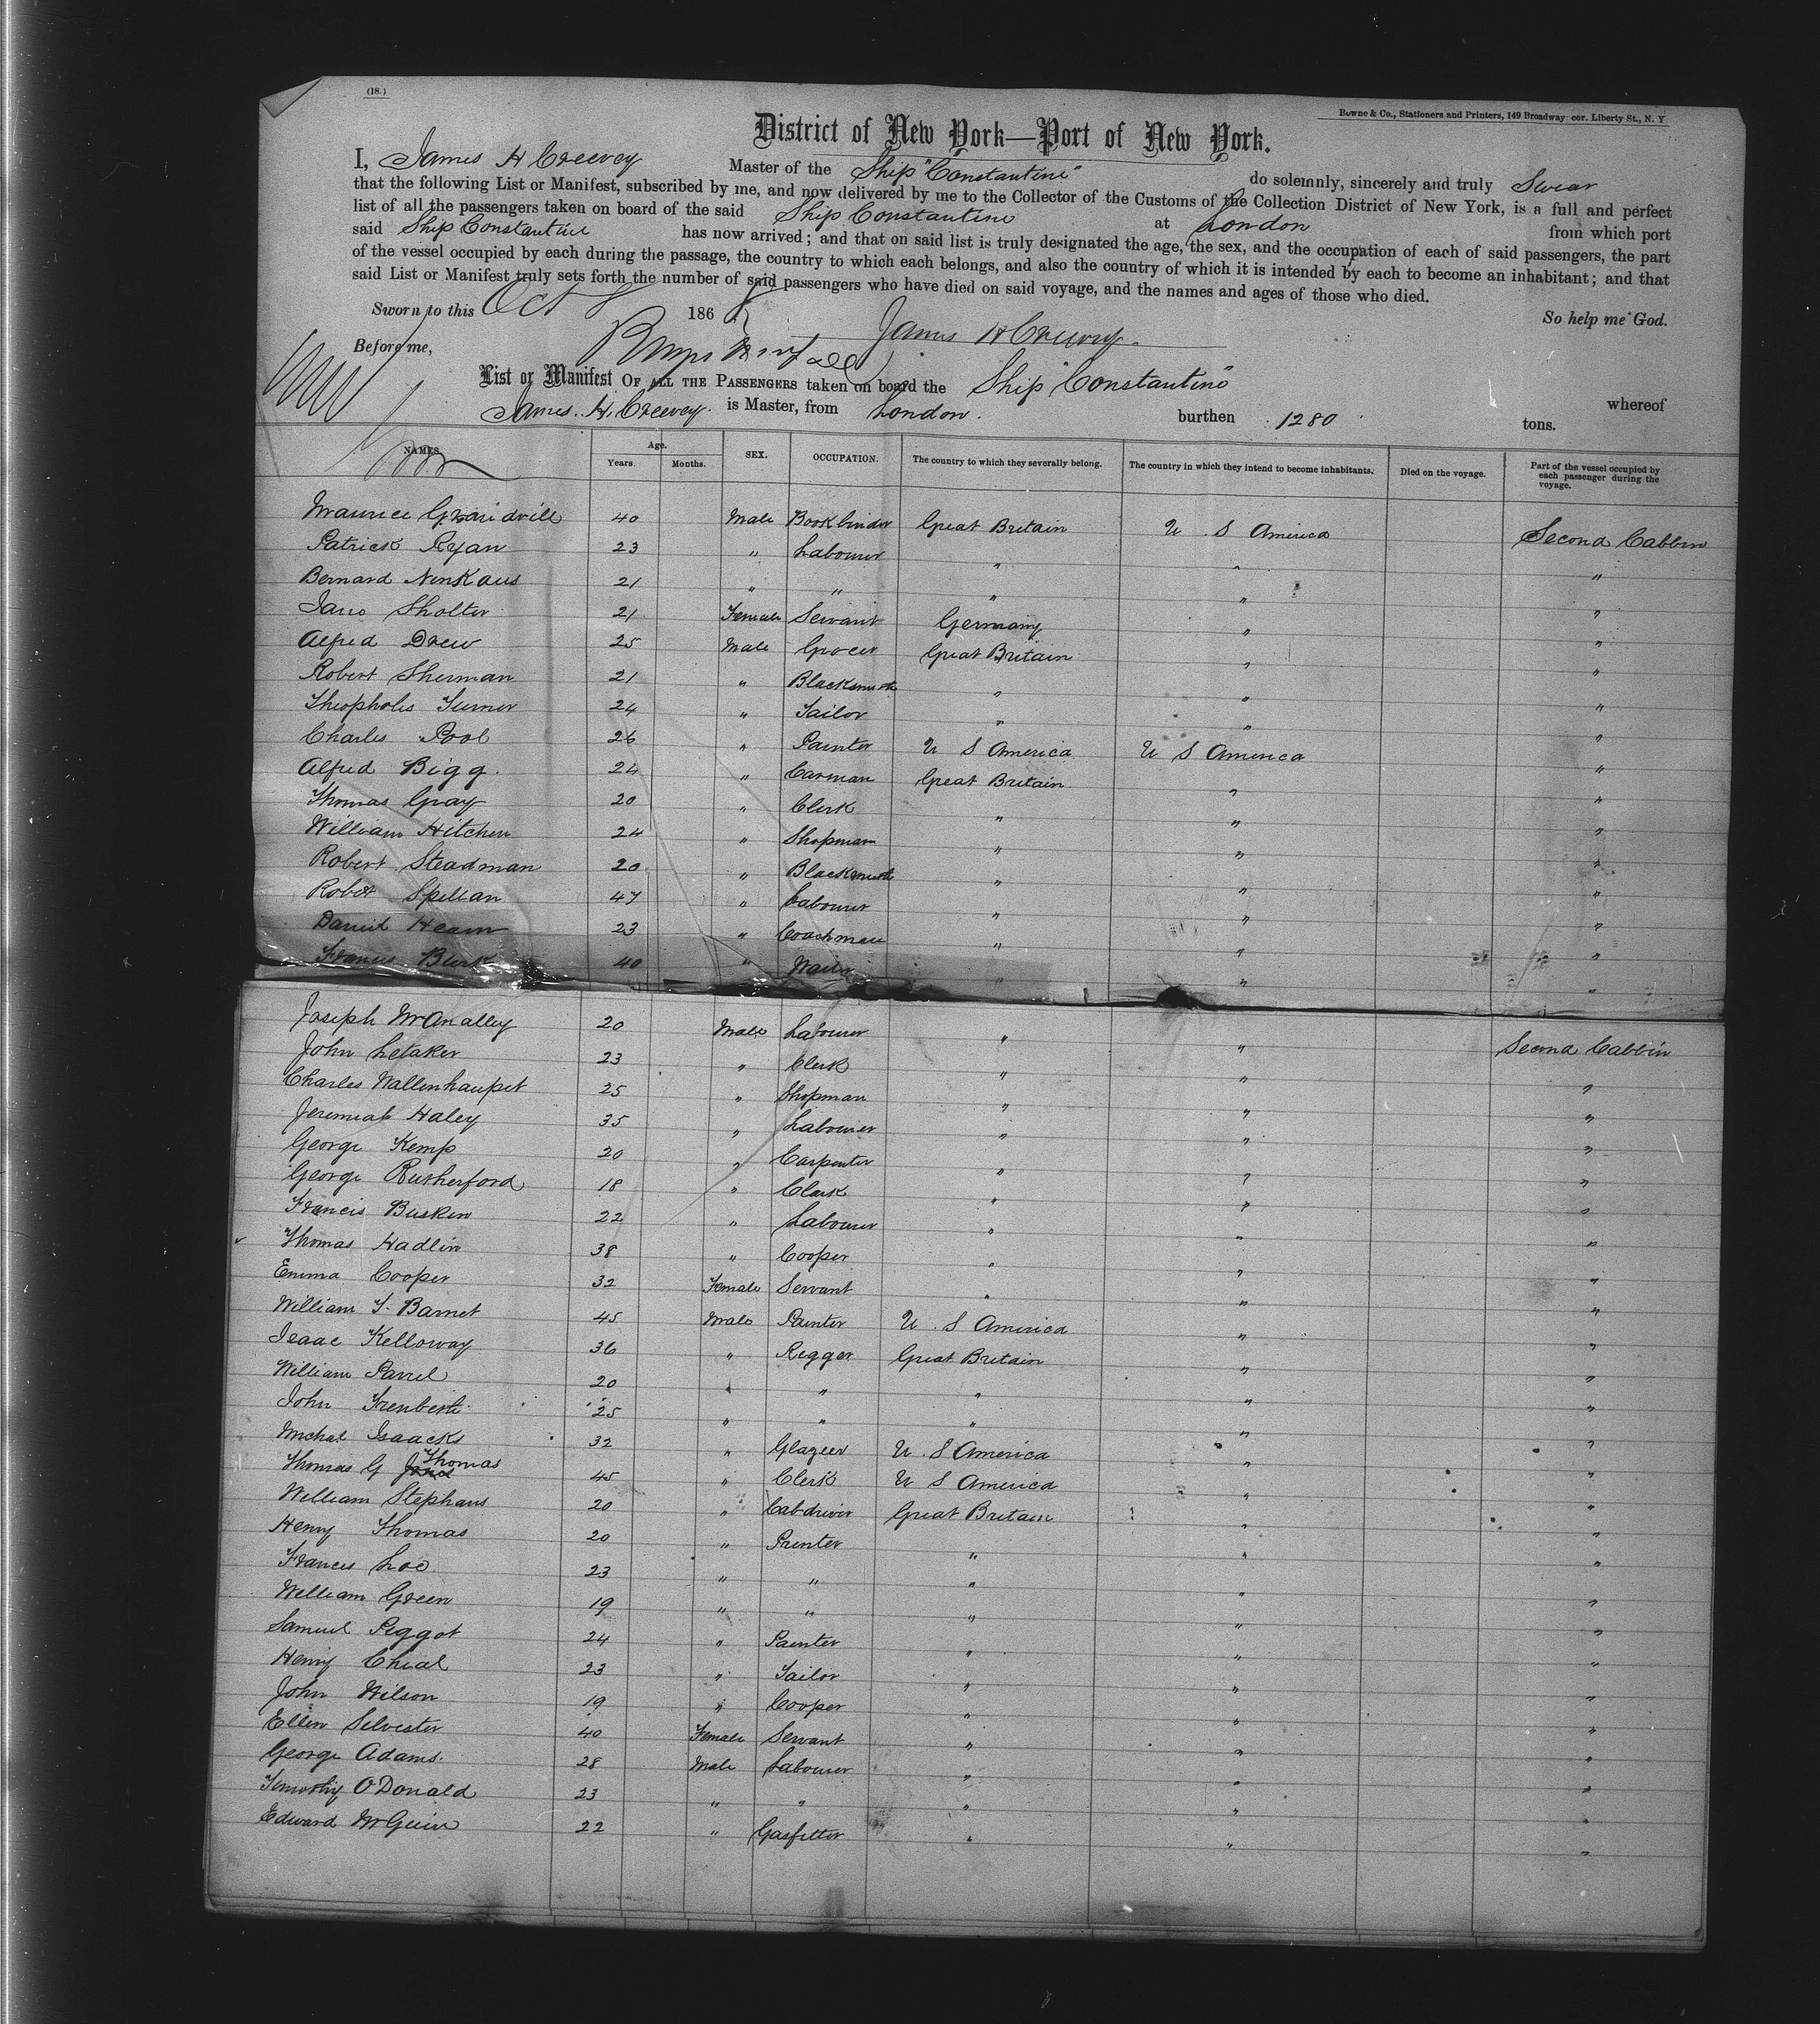 (18.)
Bowne & Co., Stationers and Printers, 149 Broadway cor. Liberty St., N. Y
District of New York—Port of New York.
I, James H Creevey Master of the Ship "Constantine" do solemnly, sincerely and truly Swear
that the following List or Manifest, subscribed by me, and now delivered by me to the Collector of the Customs of the Collection District of New York, is a full and perfect
list of all the passengers taken on board of the said Ship Constantine at London from which port
said Ship Constantine has now arrived; and that on said list is truly designated the age, the sex, and the occupation of each of said passengers, the part
of the vessel occupied by each during the passage, the country to which each belongs, and also the country of which it is intended by each to become an inhabitant; and that
said List or Manifest truly sets forth the number of said passengers who have died on said voyage, and the names and ages of those who died.
Sworn to this Oct 8 1868 So help me God.
Before me, James H Creevey
List or Manifest OF ALL THE PASSENGERS taken on board the Ship "Constantine" whereof
James. H. Creevey. is Master, from London. burthen 1280 tons.
NAMES. Age. Years. Months. SEX. OCCUPATION. The country to which they severally belong. The country in which they intend to become inhabitants. Died on the voyage. Part of the vessel occupied by each passenger during the voyage.
Maurice 40 Male Bookbinder Great Britain U. S America Second Cabbin
Patrick Ryan 23 " Labourer " " "
Bernard Nenkaus 21 " " " " "
Jane Sholter 21 Female Servant Germany " "
Alfred Drew 25 Male Grocer Great Britain " "
Robert Sherman 21 " Blacksmith " " "
Theopholis Turner 24 " Tailor " " "
Charles Pool 26 " Painter U S America U S America "
Alfred Bigg. 24 " Carman Great Britain " "
Thomas Gray 20 " Clerk " " "
William Hitchen 24 " Shopman " " "
Robert Steadman 20 " Blacksmith " " "
Robert Spillan 47 " Labourer " " "
Daniel Hearn 23 " Coachman " " "
Francis 40 " " " "
Joseph McAnalley 20 Male Labourer " " Second Cabbin
John Letaker 23 " Clerk " " "
Charles Wallenhaupet 25 " Shopman " " "
Jeremiah Haley 35 " Labourer " " "
George Kemp 20 " Carpenter " " "
George Rutherford 18 " Clark " " "
Francis Busken 22 " Labourer " " "
Thomas Hadlin 38 " Cooper " " "
Emma Cooper 32 Female Servant " " "
William T. Barnet 45 Male Painter U. S America " "
Isaac Kelloway 36 " Rigger Great Britain " "
William 20 " " " " "
John 25 " " " " "
Michal Isaacks 32 " Glazier U. S America " "
Thomas G Jones Thomas 45 " Clerk U S America " "
William Stephans 20 " Cabdriver Great Britain " "
Henry Thomas 20 " Printer " " "
Francis Loe 23 " " " " "
William Green 19 " " " " "
Samuel Piggot 24 " Painter " " "
Henry Cheal 23 " Tailor " " "
John Wilson 19 " Cooper " " "
Ellen Selvester 40 Female Servant " " "
George Adams. 28 Male Labourer " " "
Timothy O'Donald 23 " " " " "
Edward McGuire 22 " Gasfitter " " "